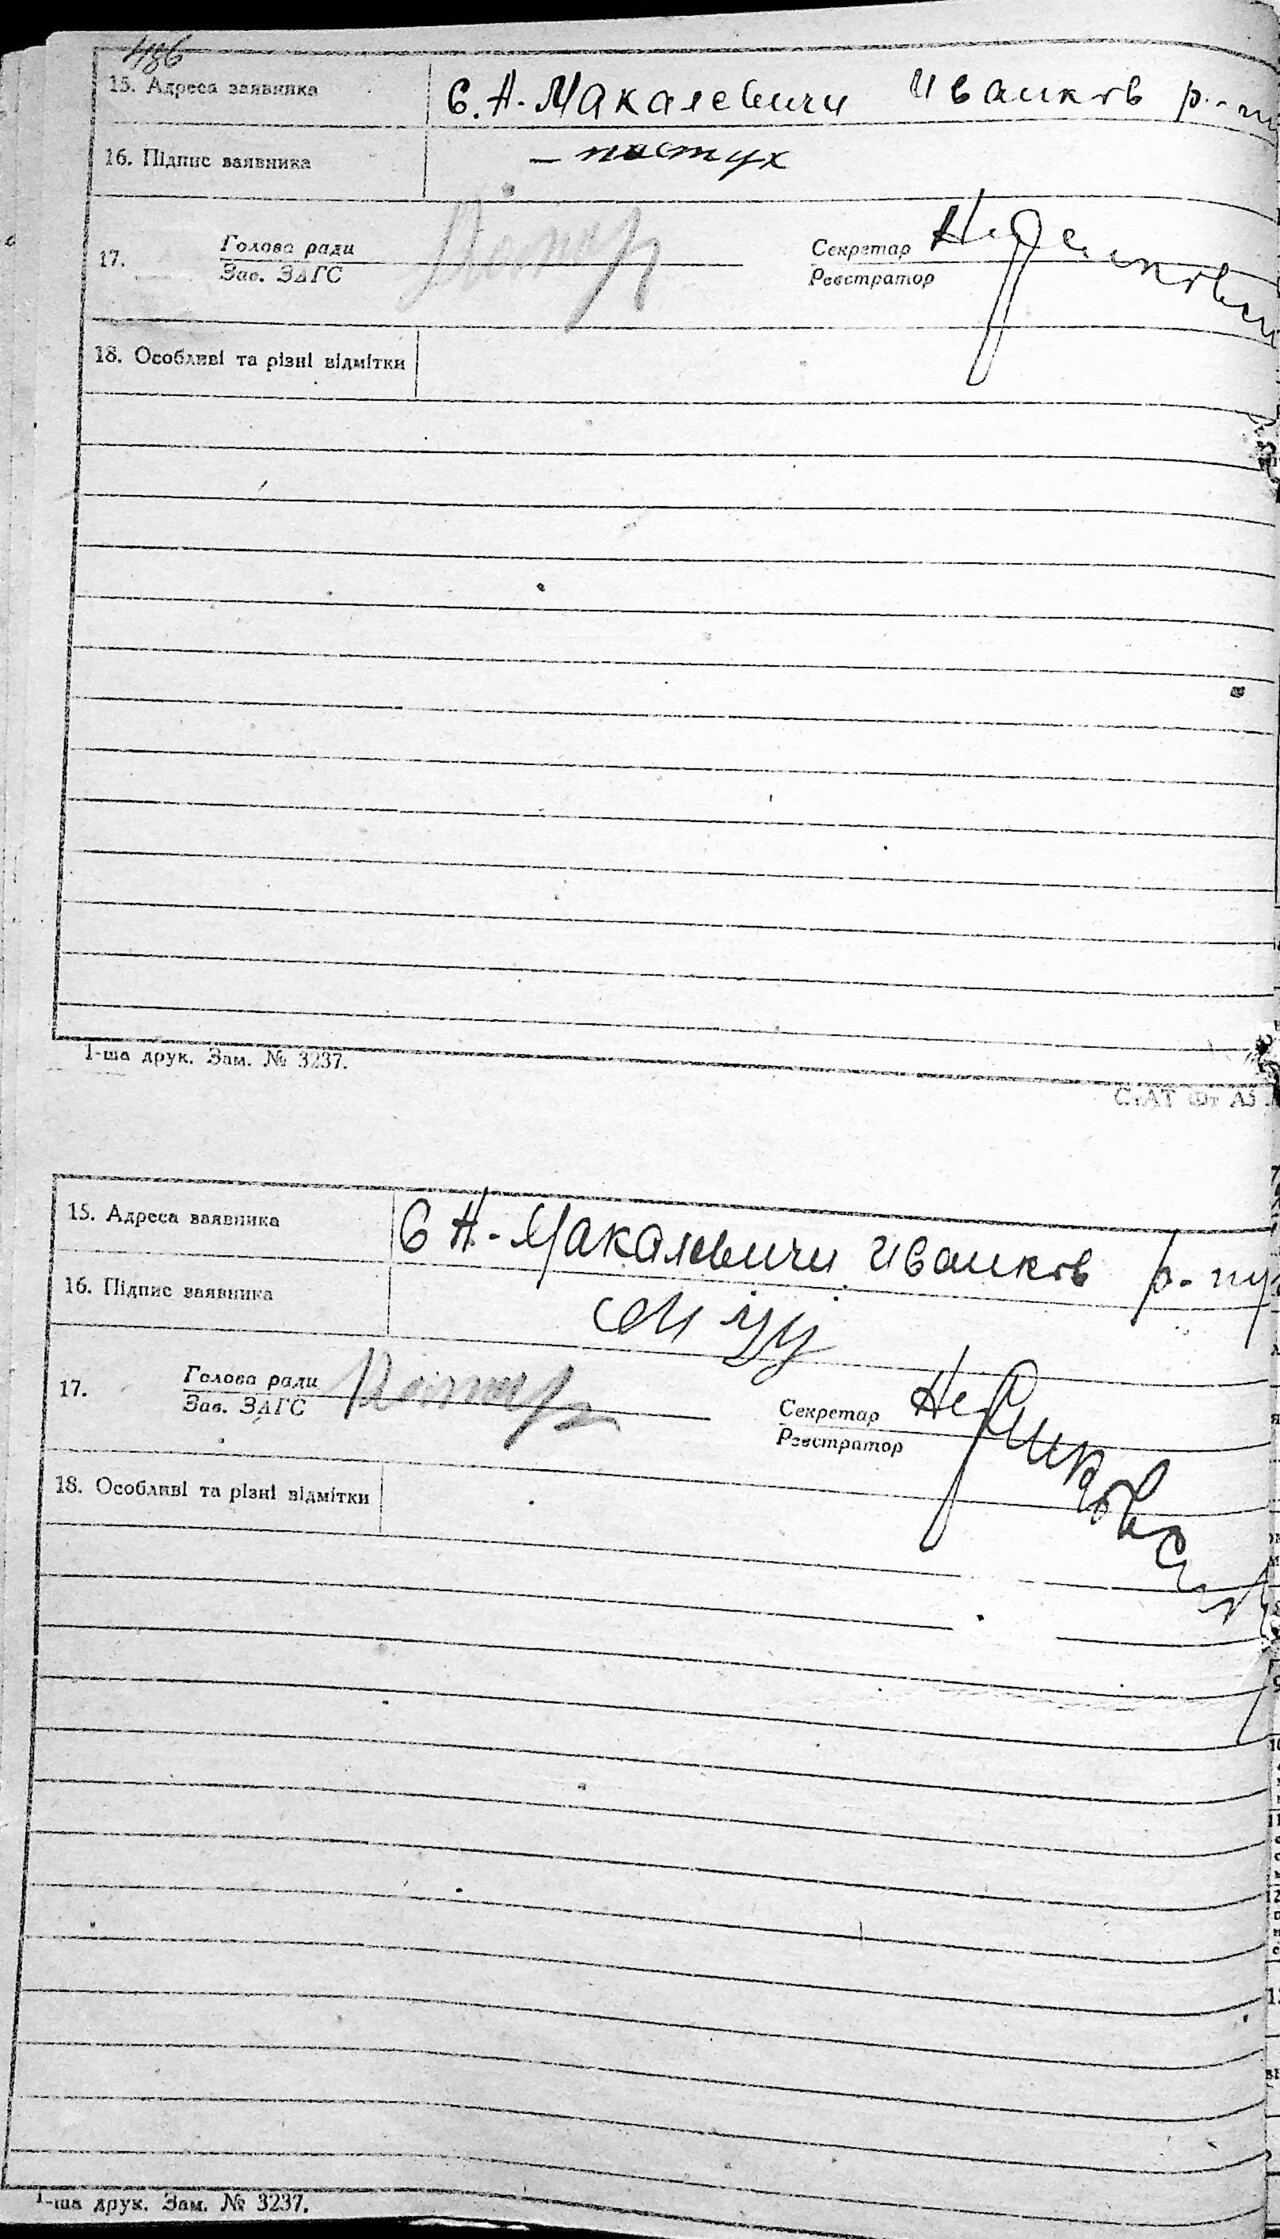 486
15. Адреса заявника с. Н-Макалевичи Иванков р-
16. Підпис заявника – пастух
17. Голова ради Секретар
Зав. ЗАГС Реєстратор
18. Особливі та різні відмітки
1-ша друк. Зам. № 3237.
СтАТ Фт А5
15. Адреса заявника с Н-Макалевичи Иванков р-
16. Підпис заявника
17. Голова ради Секретар
Зав. ЗАГС Реєстратор
18. Особливі та різні відмітки
1-ша друк. Зам. № 3237.